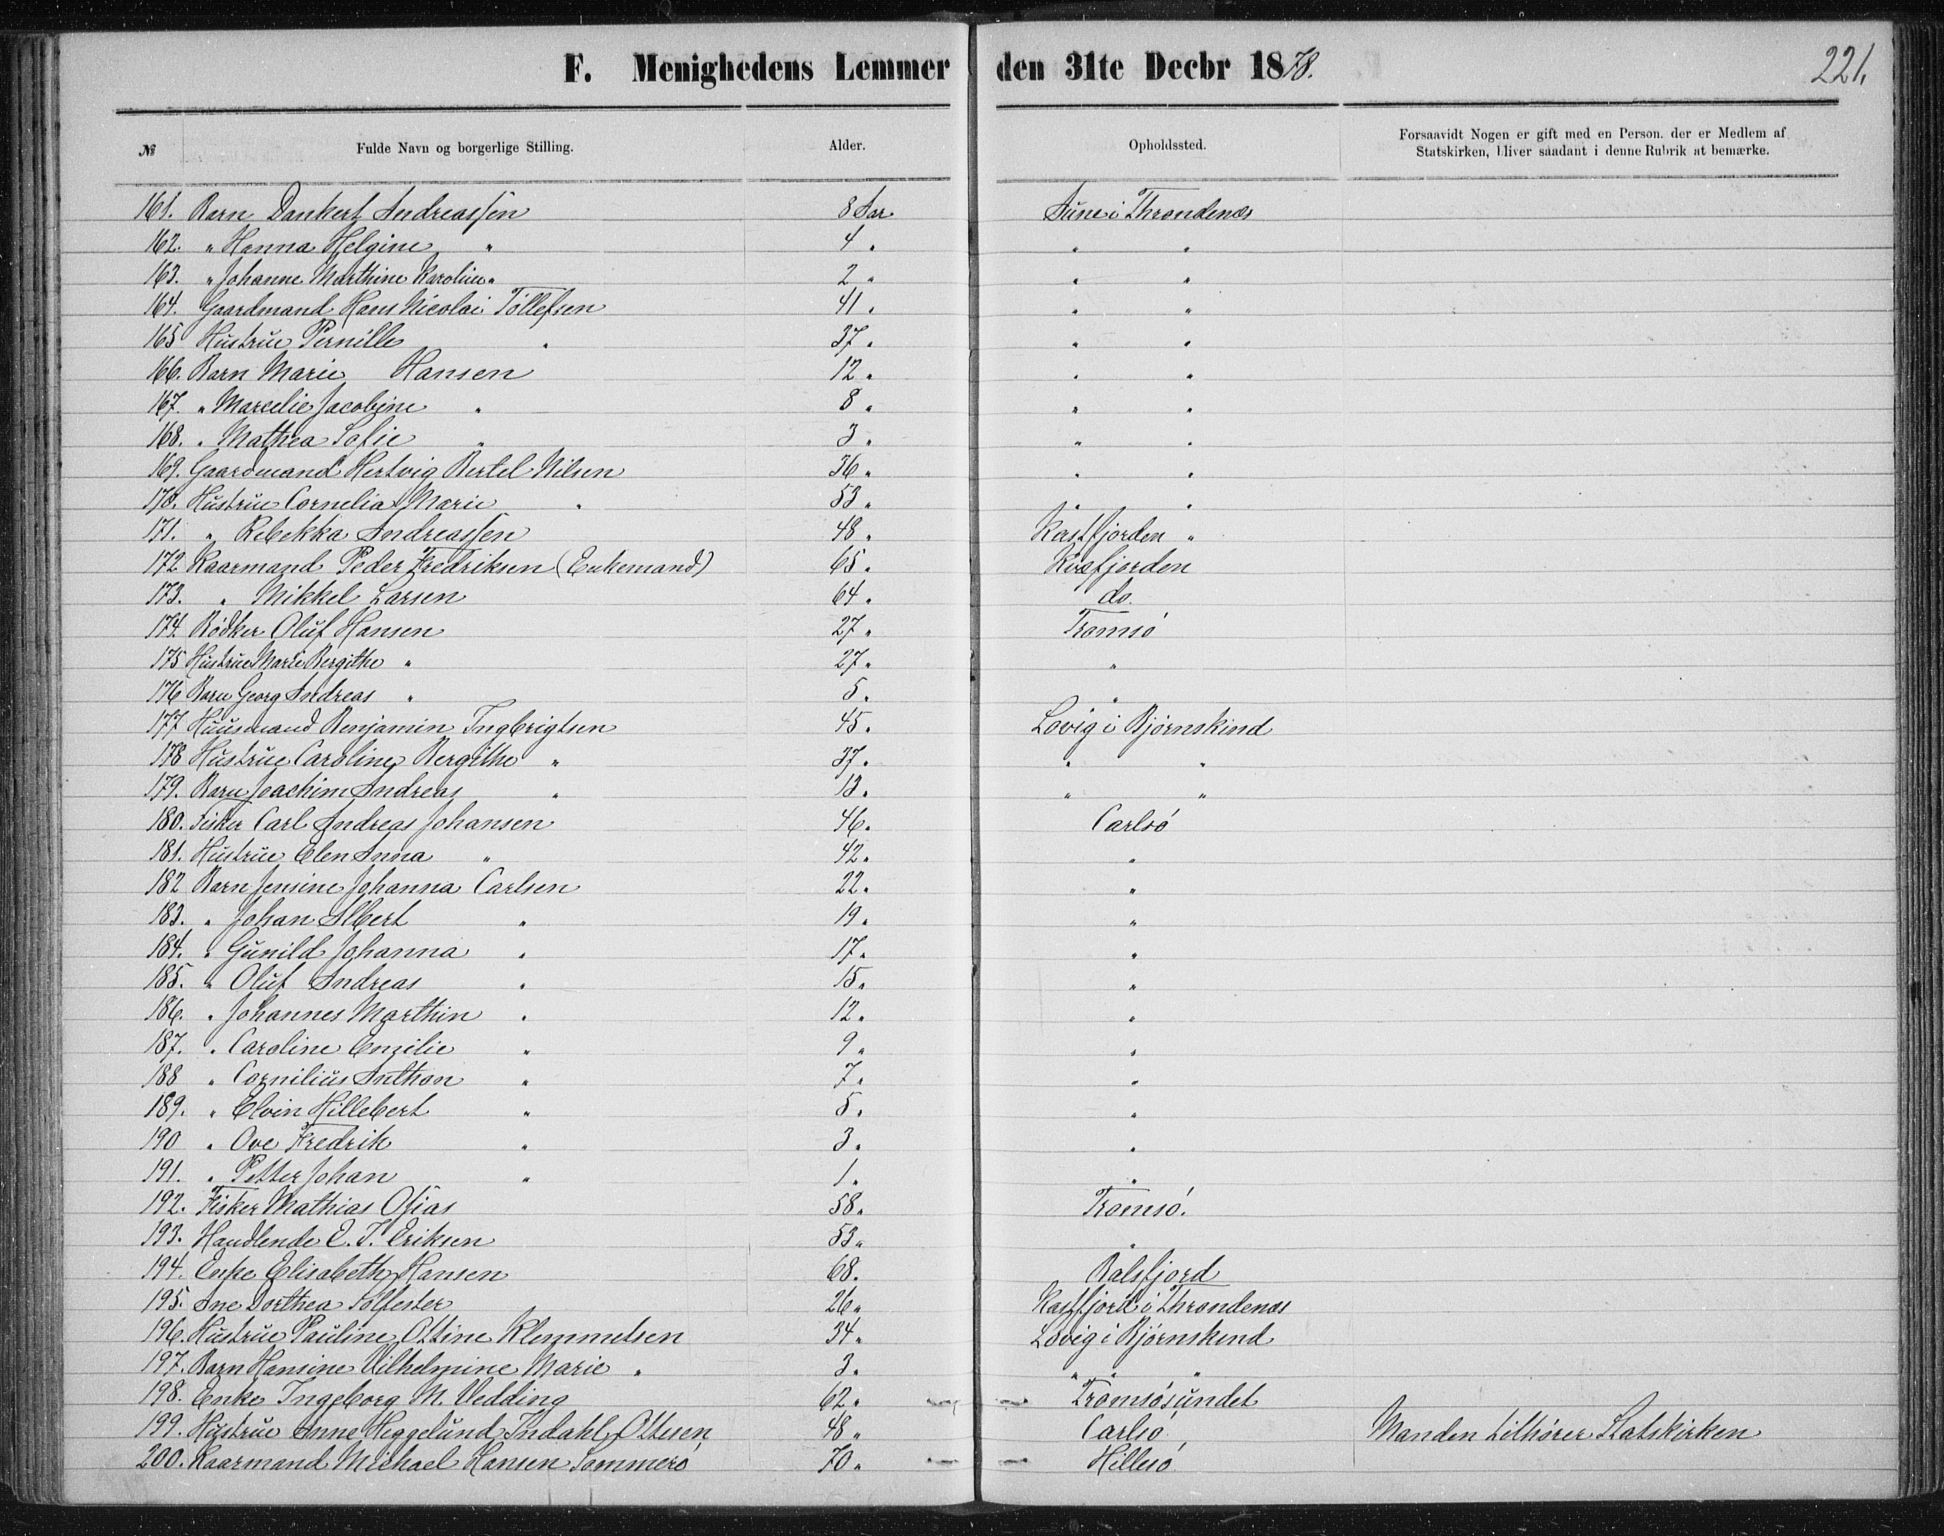 F. Menighedens Lemmer den 31te Decbr 1878. 221.
№ Fulde Navn og borgerlige Stilling. Alder. Opholdssted. Forsaavidt Nogen er gift med en Person, der er Medlem af
Statskirken, bliver saadant i denne Rubrik at bemærke.
161. Barn Dankert Andreassen 8 Aar Aune i Throndenæs
162. " Hanna Helgine " 4 " " "
163. " Johanne Marthine Karoline " 2 " " "
164. Gaardmand Hans Nicolai Tollefsen 41 " " "
165 Hustrue Pernille " 37 " " "
166. Barn Marie Hansen 12 " " "
167. " Marcelie Jacobine " 8 " " "
168. " Mathea Sofie " 3 " " "
169. Gaardmand Hertvig Bertel Nilsen 36 " " "
170. Hustrue Cornelia Marie " 53 " " "
171. " Rebekka Andreassen 48 " Kasfjorden "
172 Kaarmand Peder Fredriksen (Enkemand) 65 " Kvæfjorden
173. " Mikkel Larsen 64 " do.
174. Bødker Oluf Hansen 27 " Tromsø
175 Hustrue Marie Bergithe " 27 " "
176 Barn Georg Andreas " 5 " "
177 Huusmand Benjamin Ingbrigtsen 45 " Lovig i Bjørnskind
178 Hustrue Caroline Bergithe " 37 " " "
179. Barn Joachim Andreas " 13 " " "
180. Fisker Carl Andreas Johansen 46 " Carlsø
181. Hustrue Elen Anna " 42 " "
182 Barn Jensine Johanna Carlsen 22 " "
183. " Johan Albert " 19 " "
184. " Gunild Johanna " 17 " "
185. " Oluf Andreas " 15 " "
186. " Johannes Marthin " 12 " "
187. " Caroline Emilie " 9 " "
188 " Cornilius Anthon " 7 " "
189. " Elvin Hillebert " 5 " "
190 " Ove Fredrik " 3 " "
191. " Petter Johan " 1 " "
192. Fisker Mathias Osias 58 " Tromsø.
193. Handlende E. J. Eriksen 53 " "
194. Enke Elisabeth Hansen 68 " Balsfjord
195. Ane Dorthea Solfester 26 " Kasfjord i Throndenæs
196. Hustrue Pauline Ottine Klemmetsen 34 " Lovig i Bjørnskind
197. Barn Hansine Vilhelmine Marie " 3 " " " "
198. Enke Ingeborg M. Vedding 62 " Tromsøsundet
199. Hustrue Anne Heggelund Indahl Ottesen 48 " Carlsø Manden tilhører Statskirken
200. Kaarmand Michael Hansen Sommerø 70 " Hillesø